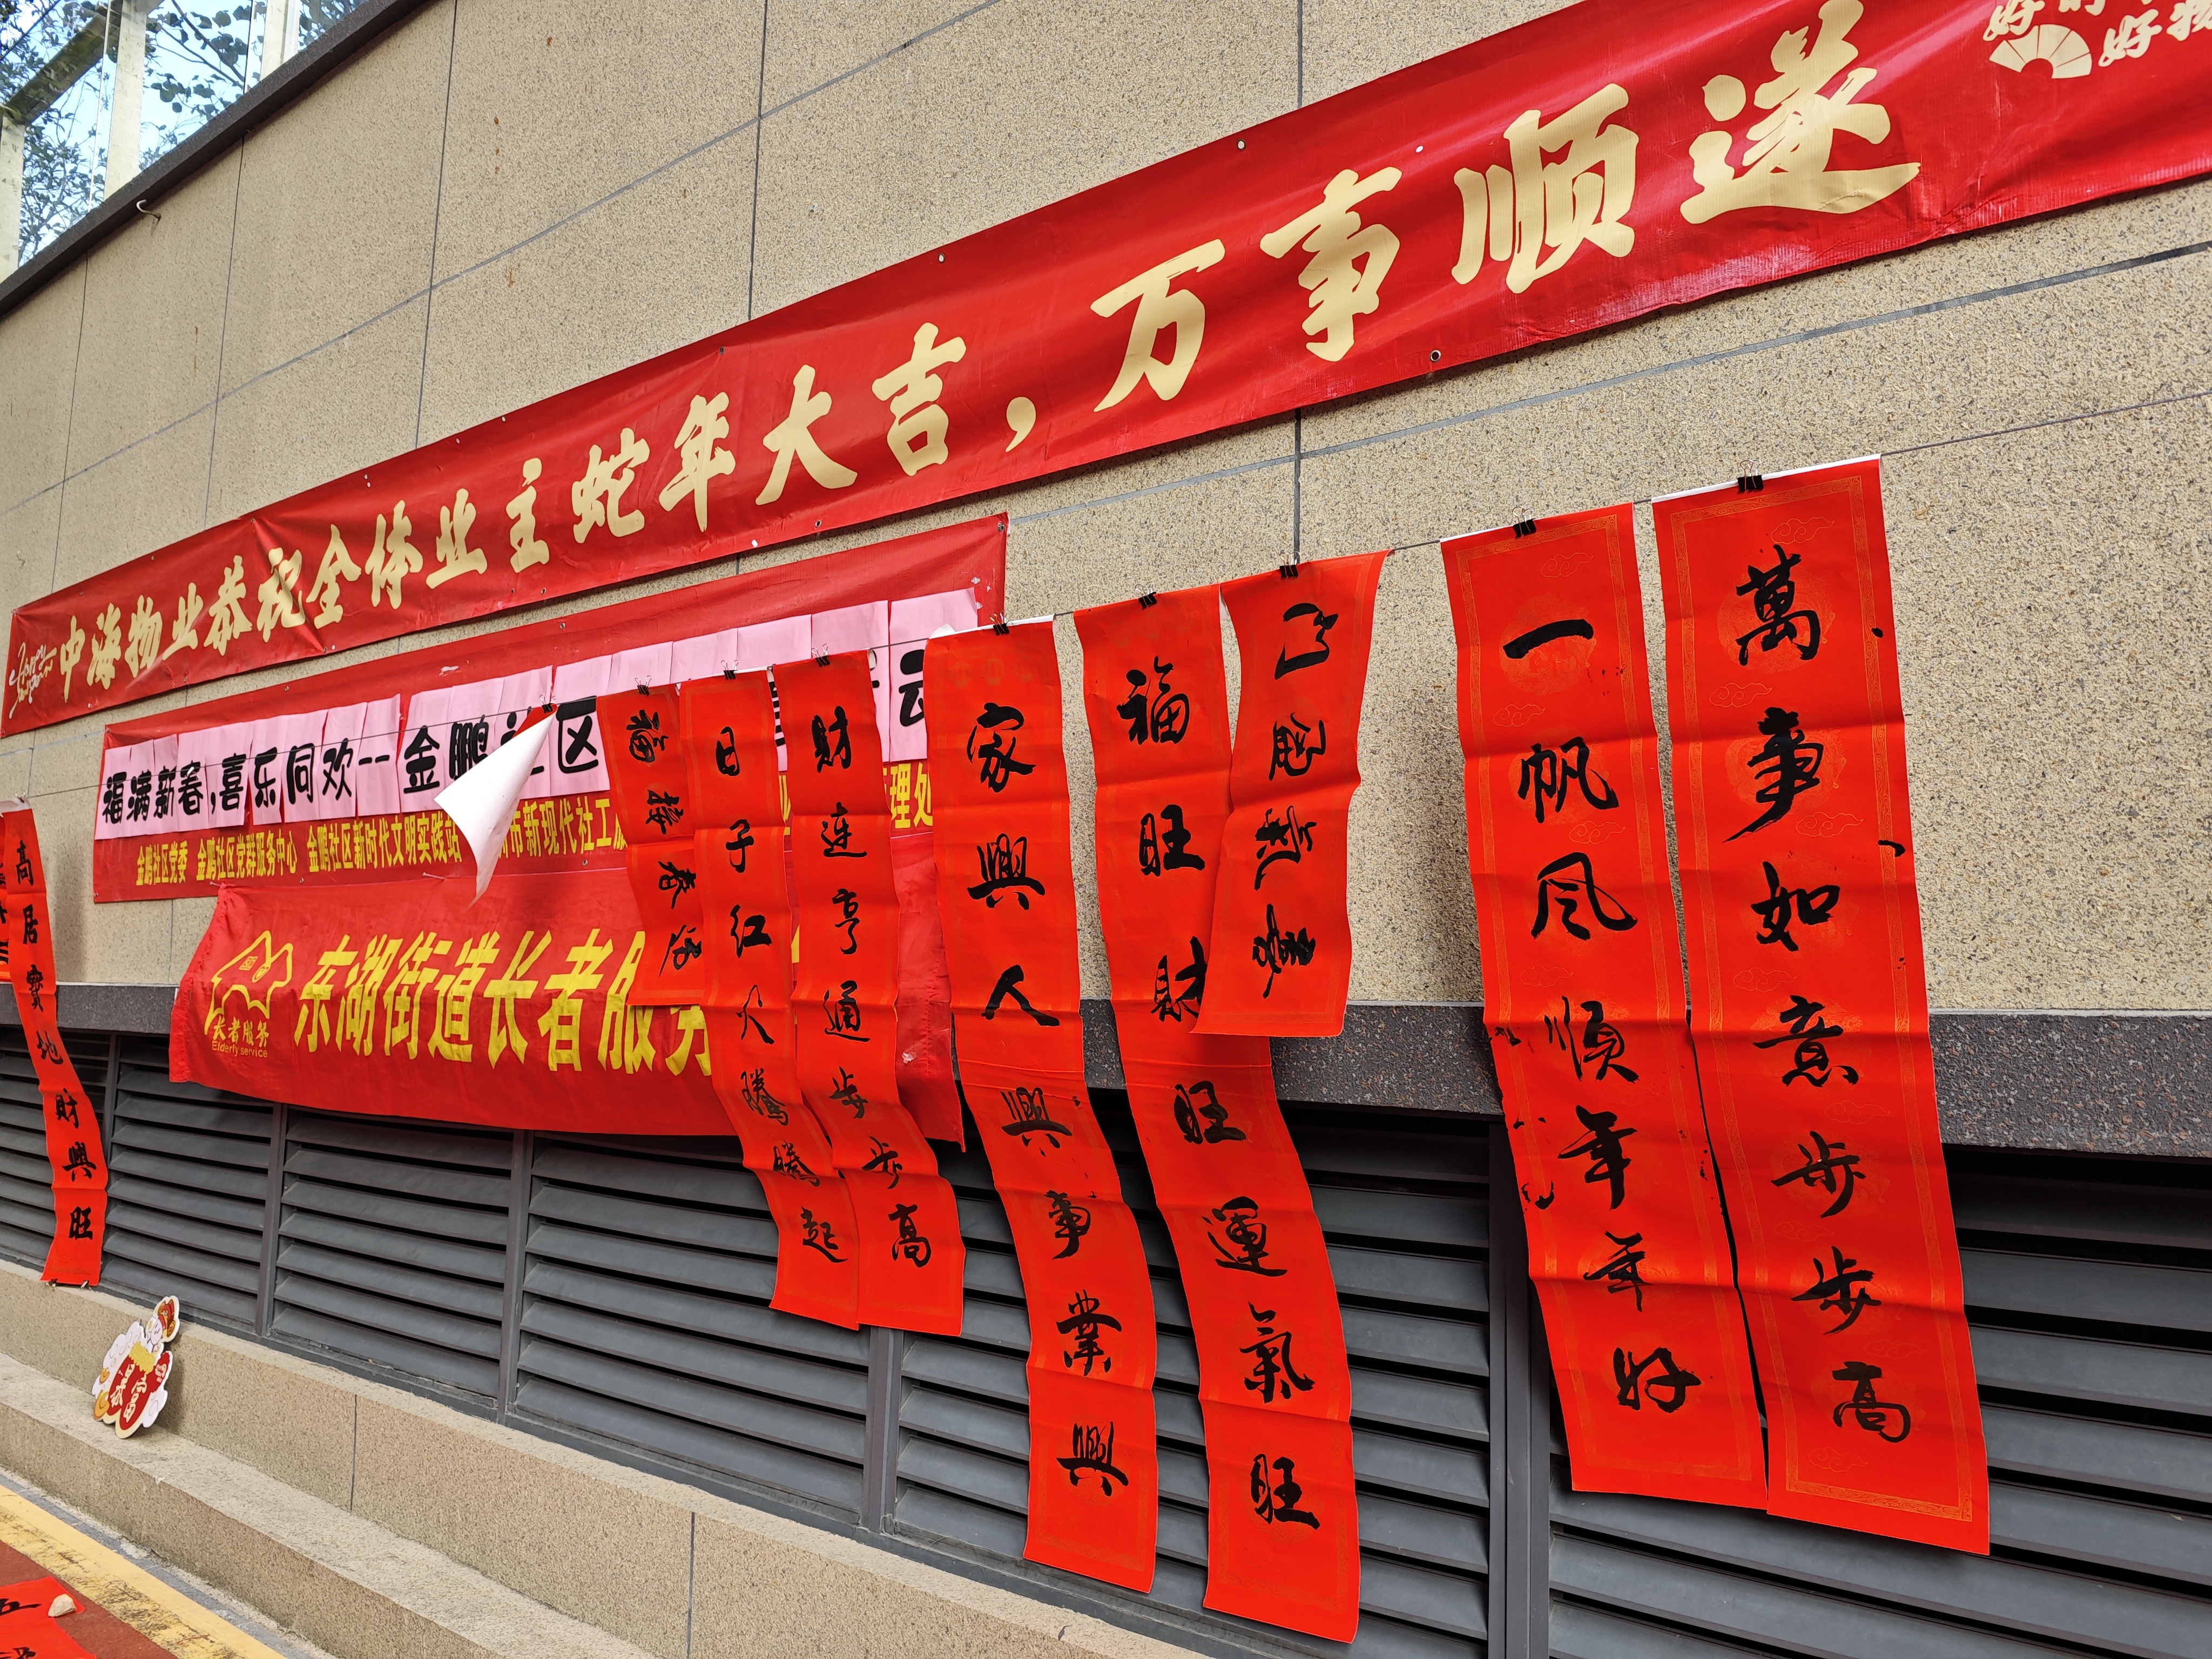 中海物业恭祝全体业主蛇年大吉，万事顺遂
福满新春，喜乐同欢--金鹏社区
金鹏社区党委 金鹏社区党群服务中心 金鹏社区新时代文明实践站
市新现代社工
理处
东湖街道长者服务
长者服务
Elderly service
高居寶地財興旺
福接春
日子红火騰騰起
財連亨通步步高
家興人興事業興
福旺財旺運氣旺
一帆风順年年好
萬事如意步步高